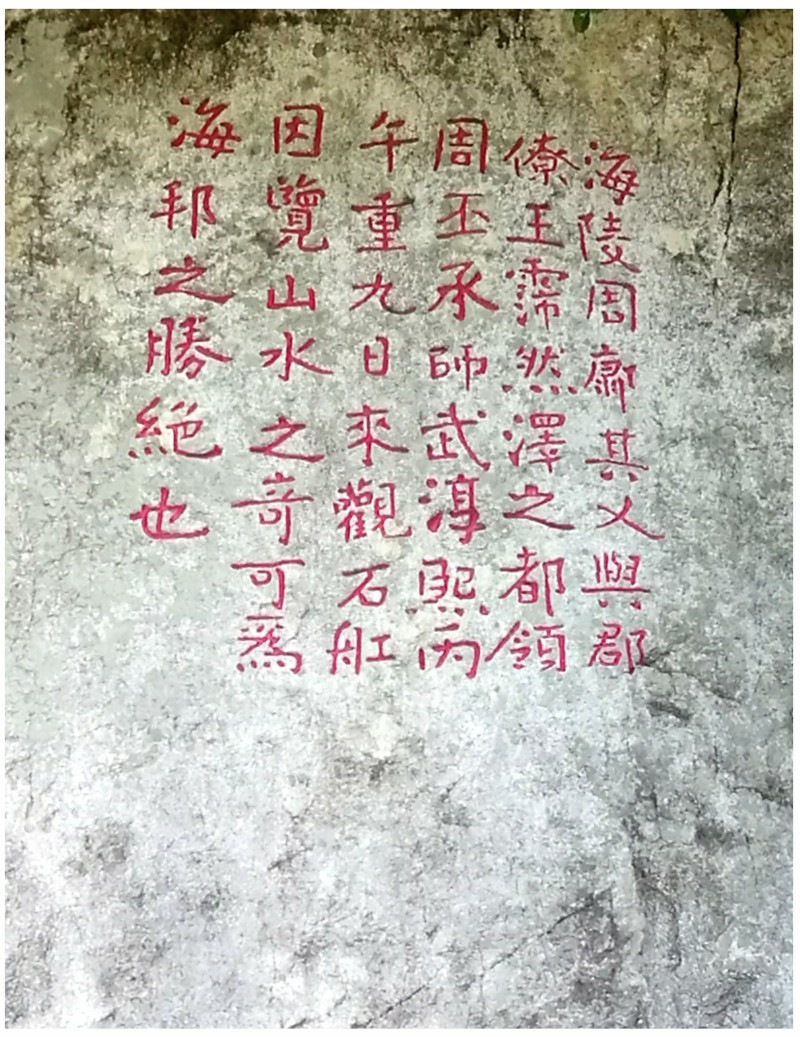 海陵周其乂與郡
僚王霈然澤之都領
周丕承師武淳熙丙
午重九日來觀石舡
因覽山水之竒可爲
海邦之勝絶也